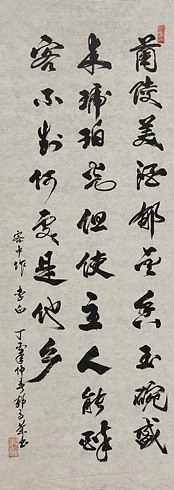 蘭陵美酒郁金香玉碗盛
来琥珀光但使主人能醉
客不知何處是他乡
客中作 李白 丁亥仲春 书